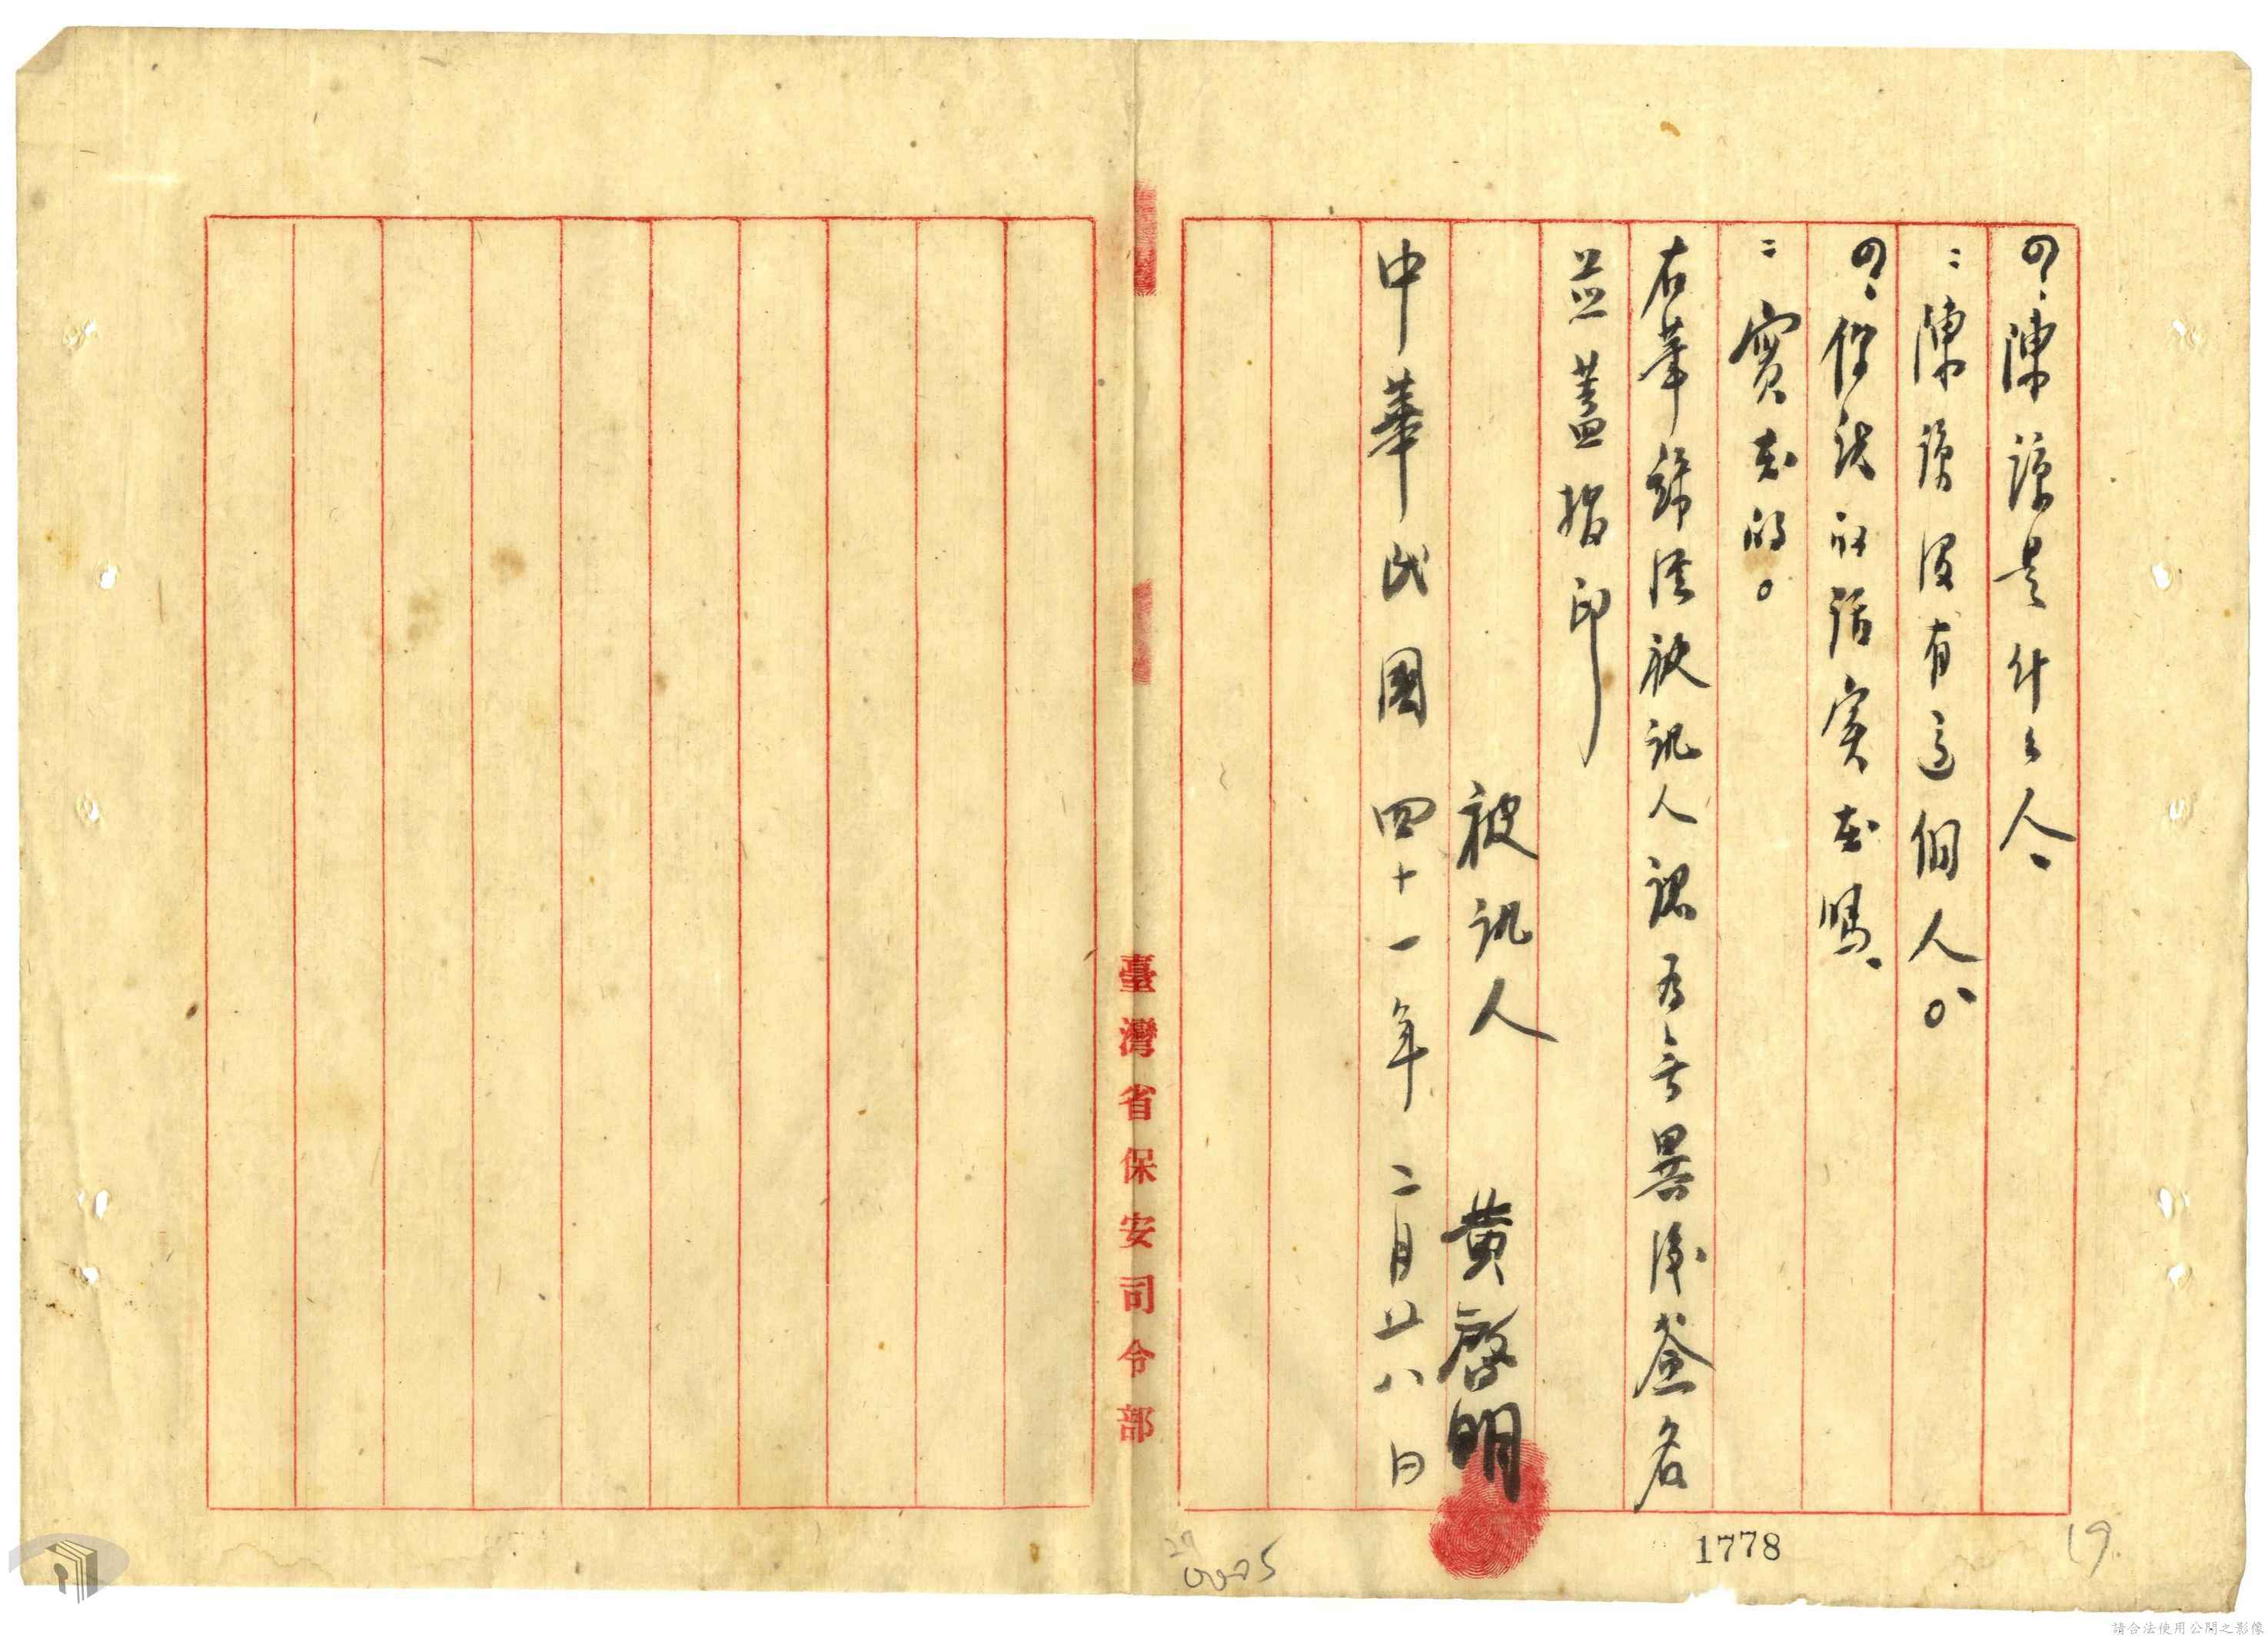 問、陳諒是什么人、
：陳諒沒有這個人。
問、你說的話實在嗎、
：實在的。
右筆錄經被訊人認為無異後簽名
並蓋指印
被訊人 黃啓明
中華民國四十一年二月廿八日
臺灣省保安司令部
1778
19
請合法使用公開之影像